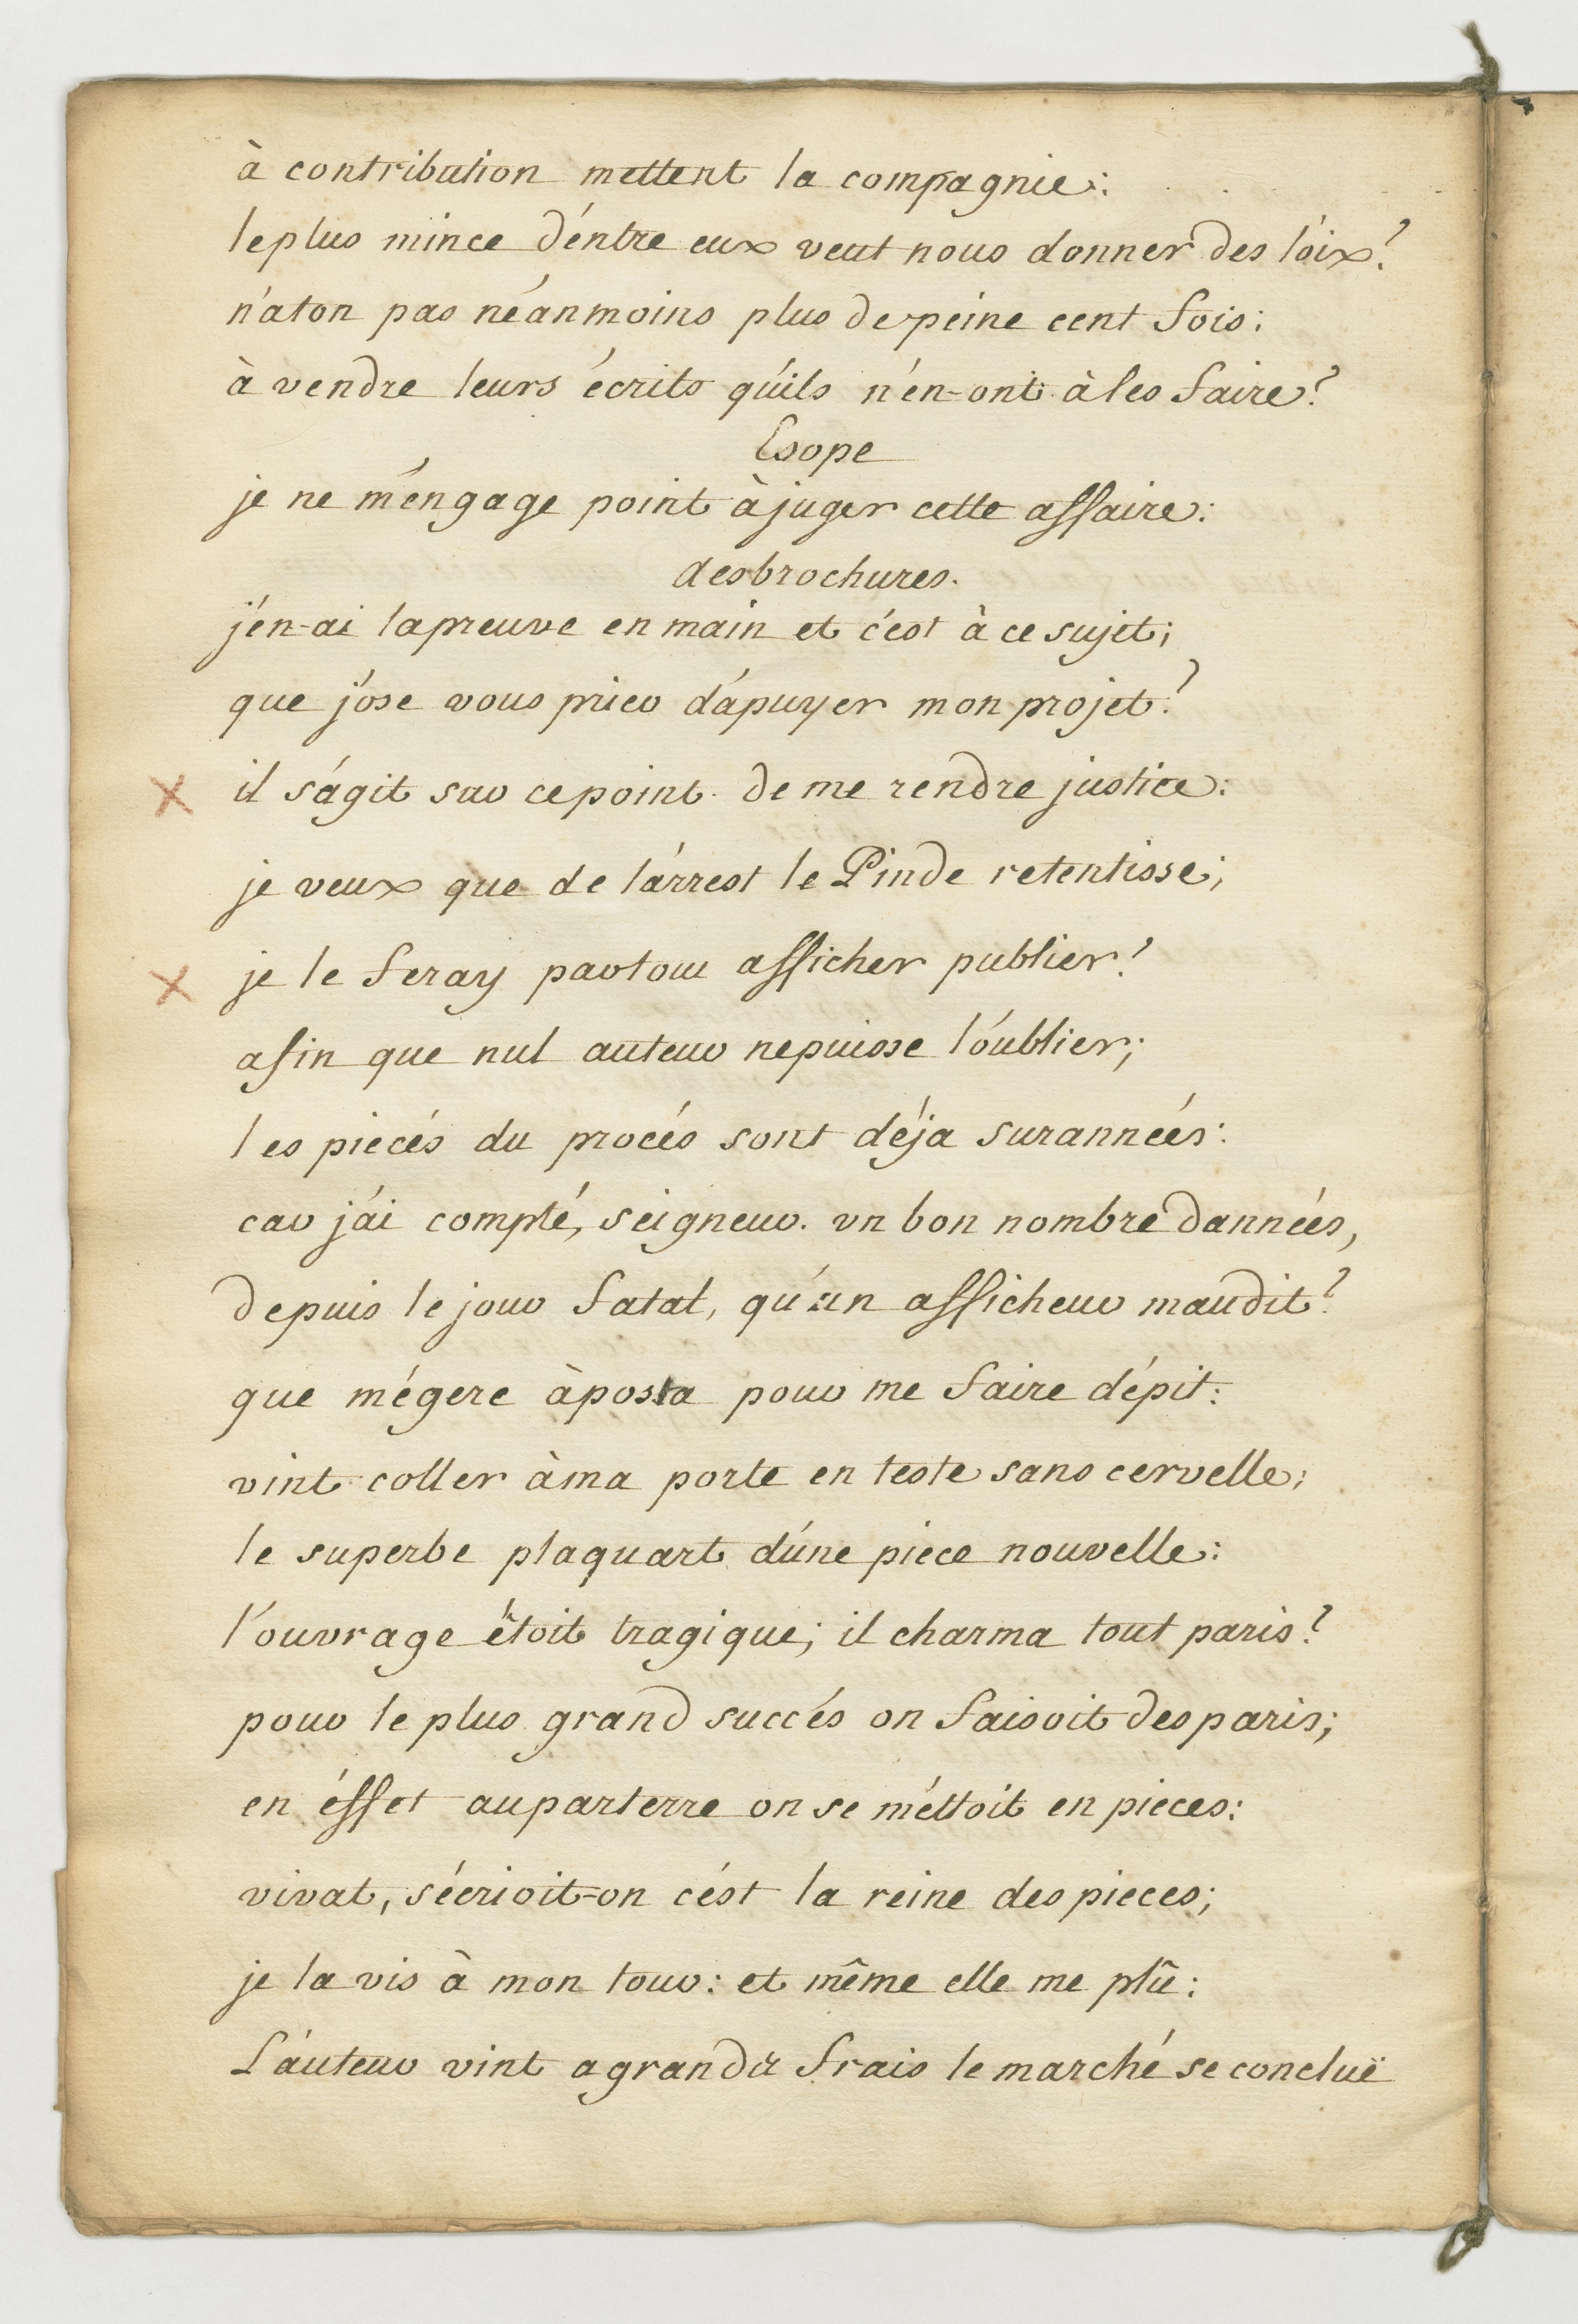 à contribution mettent la compagnie:
le plus mince d'éntre eux veut nous donner des loix?
n'aton pas néanmoins plus de peine cent fois;
à vendre leurs écrits qu'ils n'én-ont à les faire?
Esope
je ne m'éngage point à juger cette affaire:
desbrochures.
j'én-ai la preuve en main et c'ést à ce sujet;
que j'ose vous prier d'ápuyer mon projet?
× il s'ágit sur ce point de me rendre justice:
je veux que de l'árrest le Pinde retentisse;
× je le feray partout afficher publier?
afin que nul auteur ne puisse l'óublier;
les piecés du procés sont déja surannéés:
car j'ái compté, seigneur. vn bon nombre dannéés,
depuis le jour fatal, qu'un afficheur maudit?
que mégere àposta pour me faire dépit:
vint coller à ma porte en teste sans cervelle;
le superbe plaquart d'úne piece nouvelle:
l'ouvrage étoit tragique; il charma tout paris?
pour le plus grand succés on faisoit des paris;
en éffet au parterre on se méttoit en pieces:
vivat, s'écrioit-on c'ést la reine des pieces;
je la vis à mon tour: et même elle me plû:
L'áuteur vint a grands frais le marché se concluë